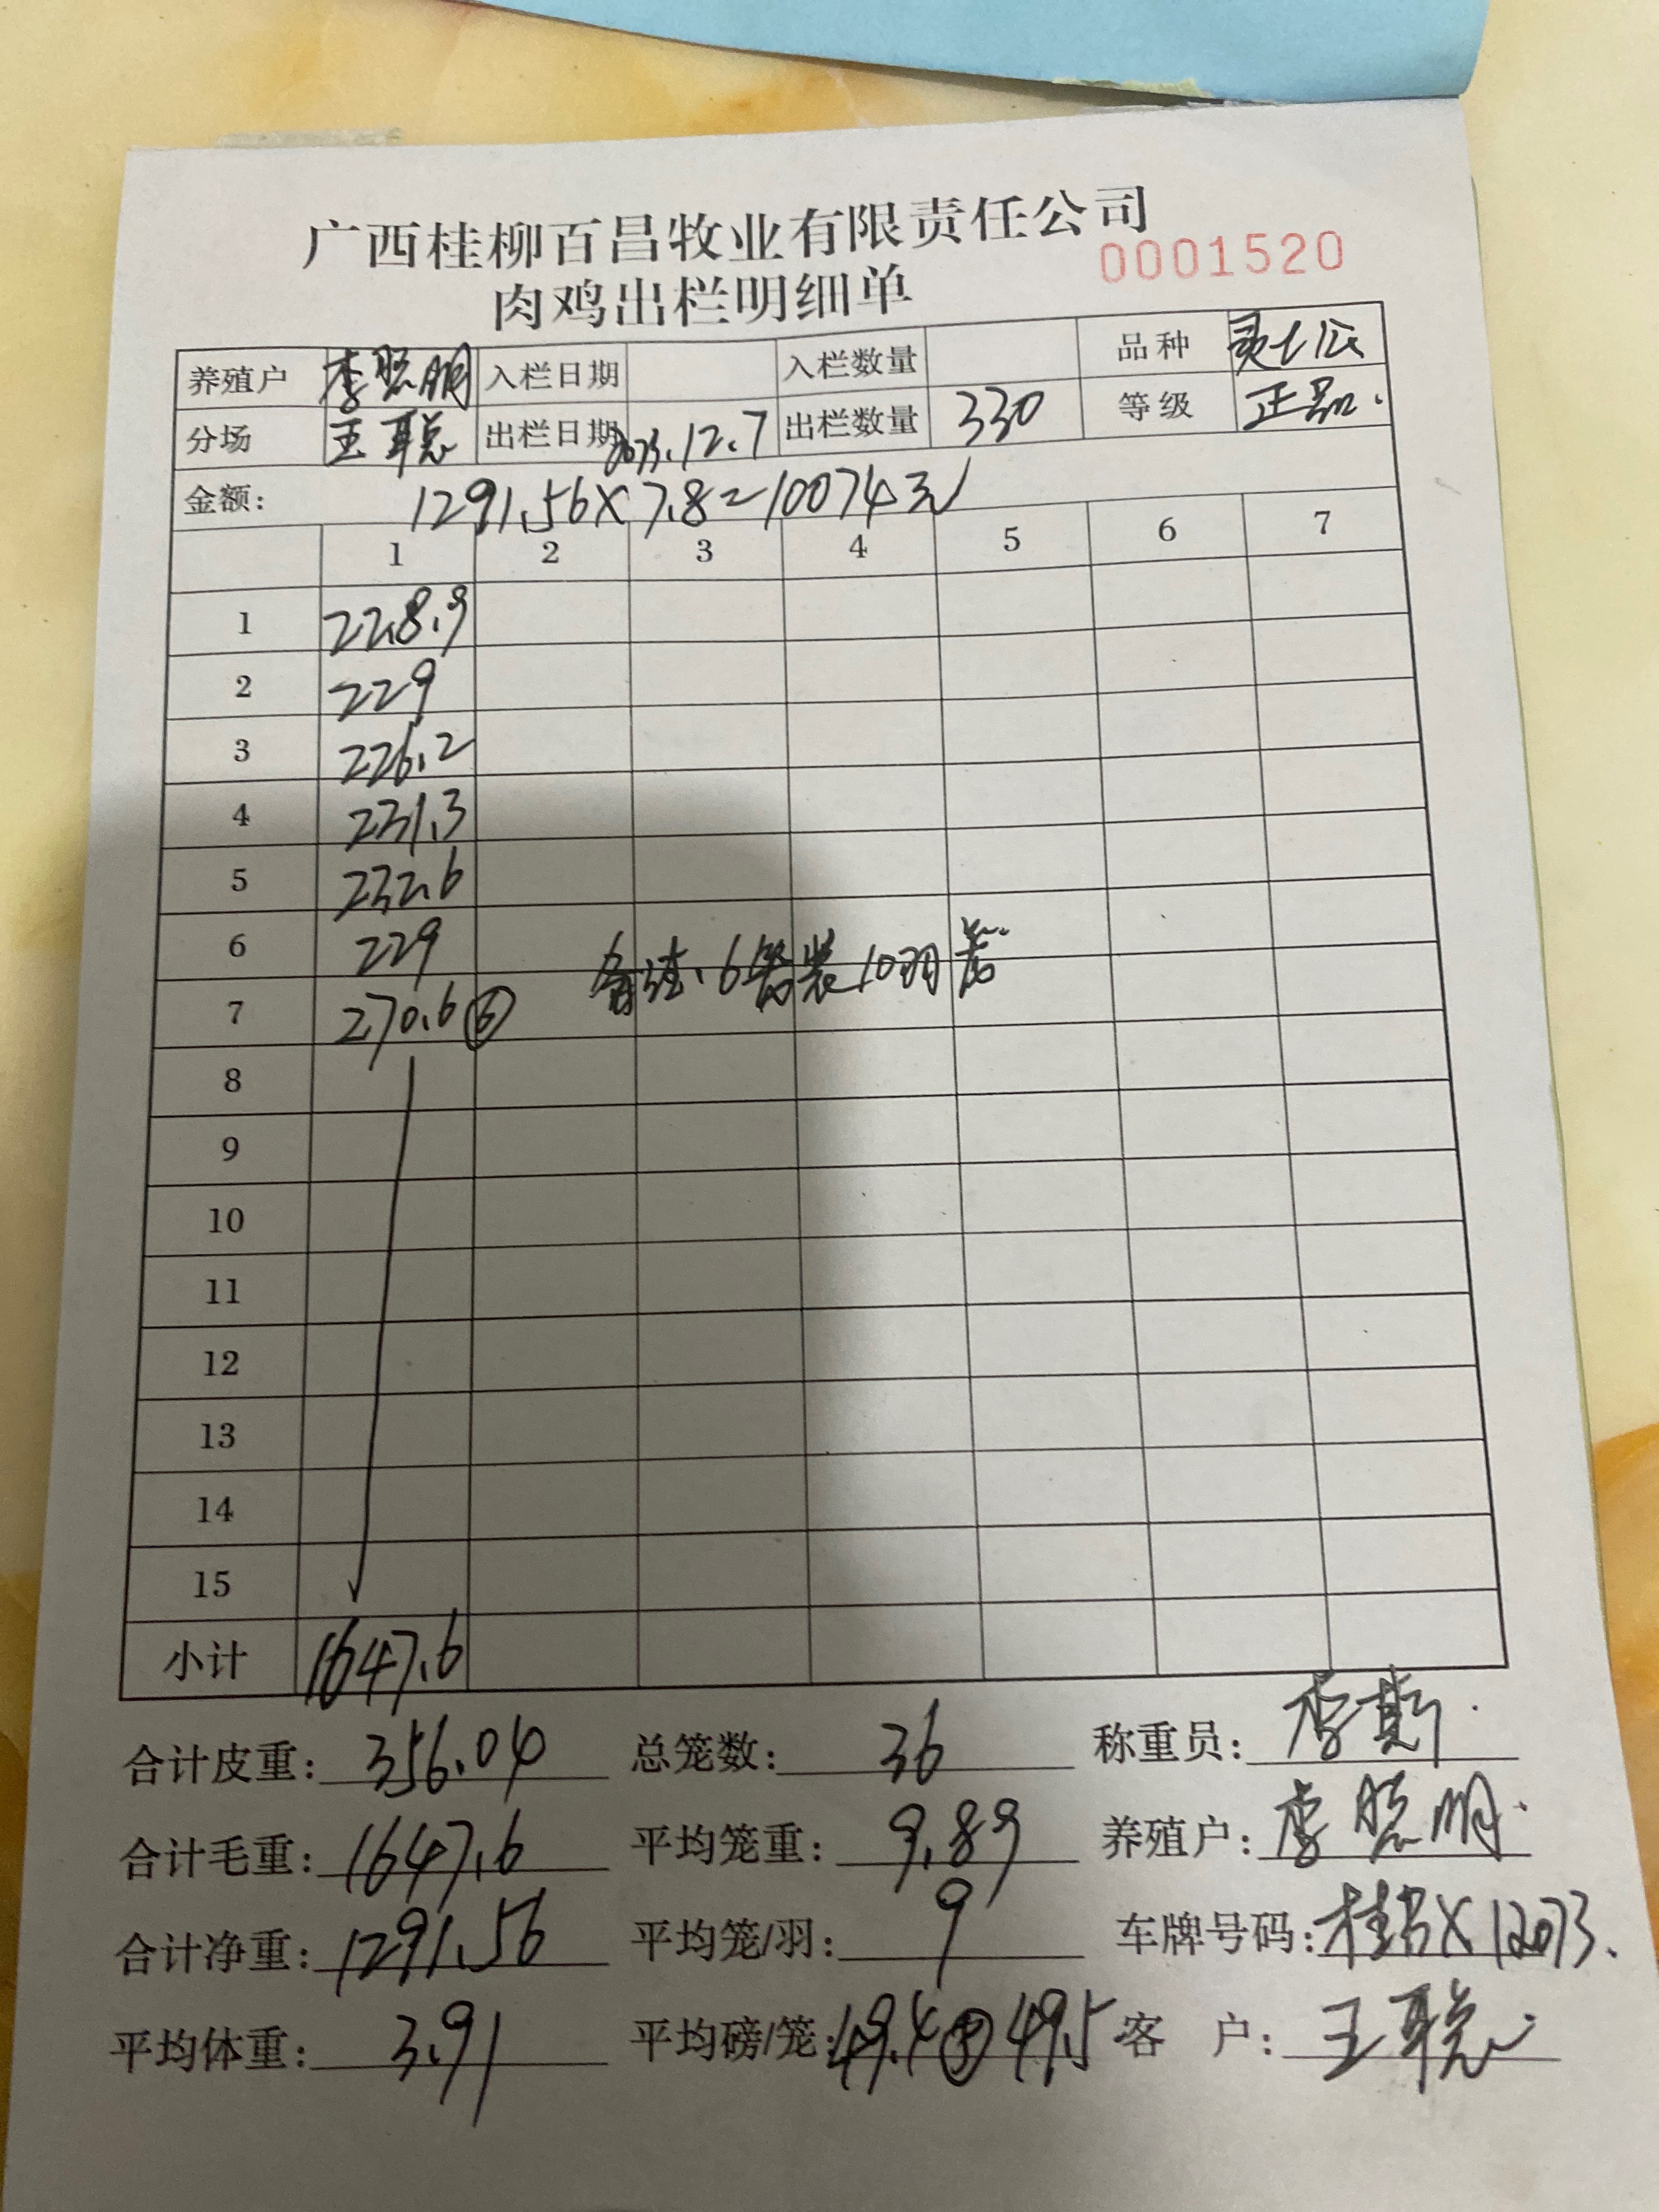 广西桂柳百昌牧业有限责任公司
0001520
肉鸡出栏明细单
养殖户 李聪明 入栏日期 入栏数量 品种 灵七公
分场 王聪 出栏日期 2023.12.7 出栏数量 330 等级 正品.
金额: 1291.56×7.8=10074元
1 2 3 4 5 6 7
1 228.9
2 229
3 226.2
4 231.3
5 232.6
6 229 备注、6笼装10羽
7 270.6⑥
8
9
10
11
12
13
14
15
小计 1647.6
合计皮重: 356.04 总笼数: 36 称重员: 李
合计毛重: 1647.6 平均笼重: 9.89 养殖户: 李聪明.
合计净重: 1291.56 平均笼/羽: 9 车牌号码: 桂 X12073.
平均体重: 3.91 平均磅/笼: 49.4 49.5 客户: 王聪